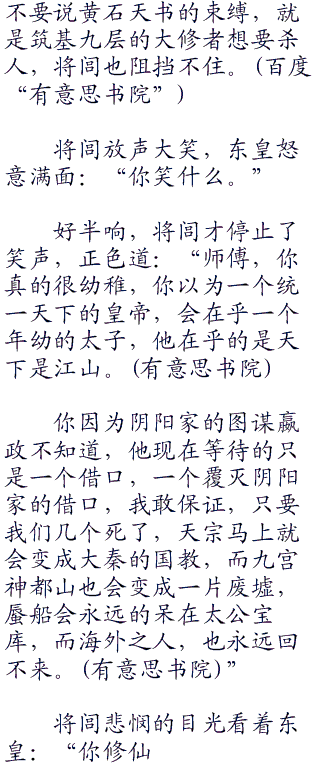 不要说黄石天书的束缚，就
是筑基九层的大修者想要杀
人，将闾也阻挡不住。(百度
“有意思书院”)
将闾放声大笑，东皇怒
意满面：“你笑什么。”
好半响，将闾才停止了
笑声，正色道：“师傅，你
真的很幼稚，你以为一个统
一天下的皇帝，会在乎一个
年幼的太子，他在乎的是天
下是江山。(有意思书院)
你因为阴阳家的图谋嬴
政不知道，他现在等待的只
是一个借口，一个覆灭阴阳
家的借口，我敢保证，只要
我们几个死了，天宗马上就
会变成大秦的国教，而九宫
神都山也会变成一片废墟，
蜃船会永远的呆在太公宝
库，而海外之人，也永远回
不来。(有意思书院)”
将闾悲悯的目光看着东
皇：“你修仙